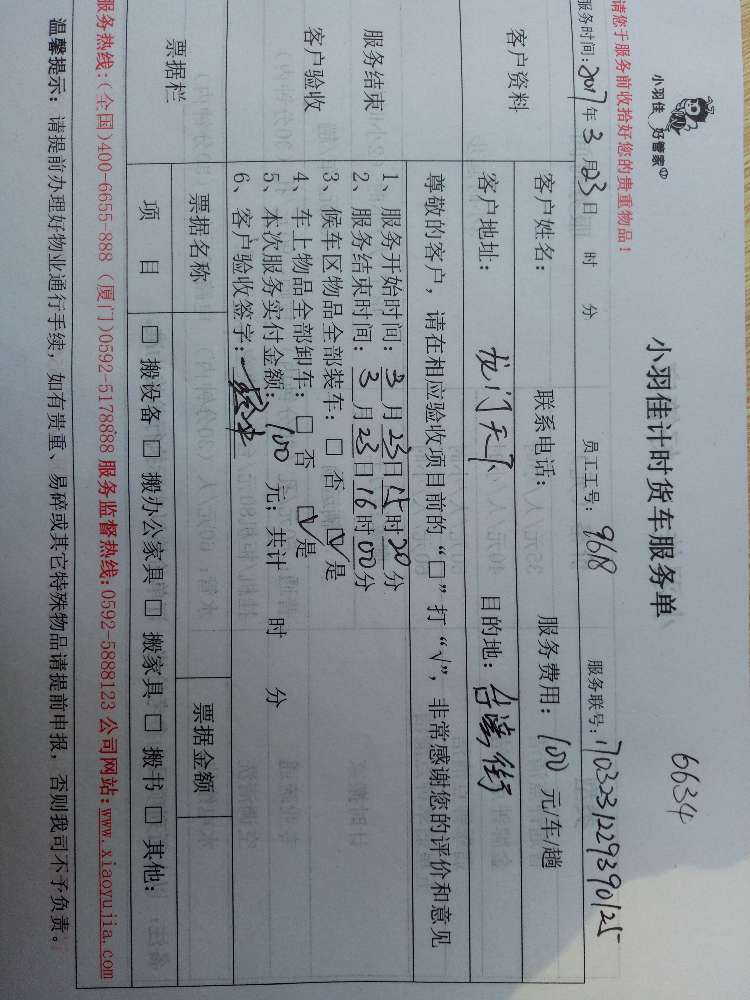 小羽佳 好管家
小羽佳计时货车服务单
6634
请您于服务前收拾好您的贵重物品！
服务时间：2017年3月23日 时 分 员工工号：968 服务联号：1703231229390125
客户资料
客户姓名： 联系电话： 服务费用：100元/车/趟
客户地址：龙门天下 目的地：
尊敬的客户，请在相应验收项目前的“□”打“√”，非常感谢您的评价和意见
服务结束
客户验收
1、服务开始时间：3月23日15时20分
2、服务结束时间：3月23日16时00分
3、候车区物品全部装车：□ 否 ☑是
4、车上物品全部卸车：□ 否 ☑是
5、本次服务实付金额：100元；共计 时 分
6、客户验收签字：
票据栏
票据名称 票据金额
项 目 □ 搬设备 □ 搬办公家具 □ 搬家具 □ 搬书 □ 其他：
服务热线：(全国)400-6655-888（厦门)0592-5178888 服务监督热线：0592-5888123 公司网站：www.xiaoyujia.com
温馨提示：请提前办理好物业通行手续，如有贵重、易碎或其它特殊物品请提前申报，否则我司不予负责。